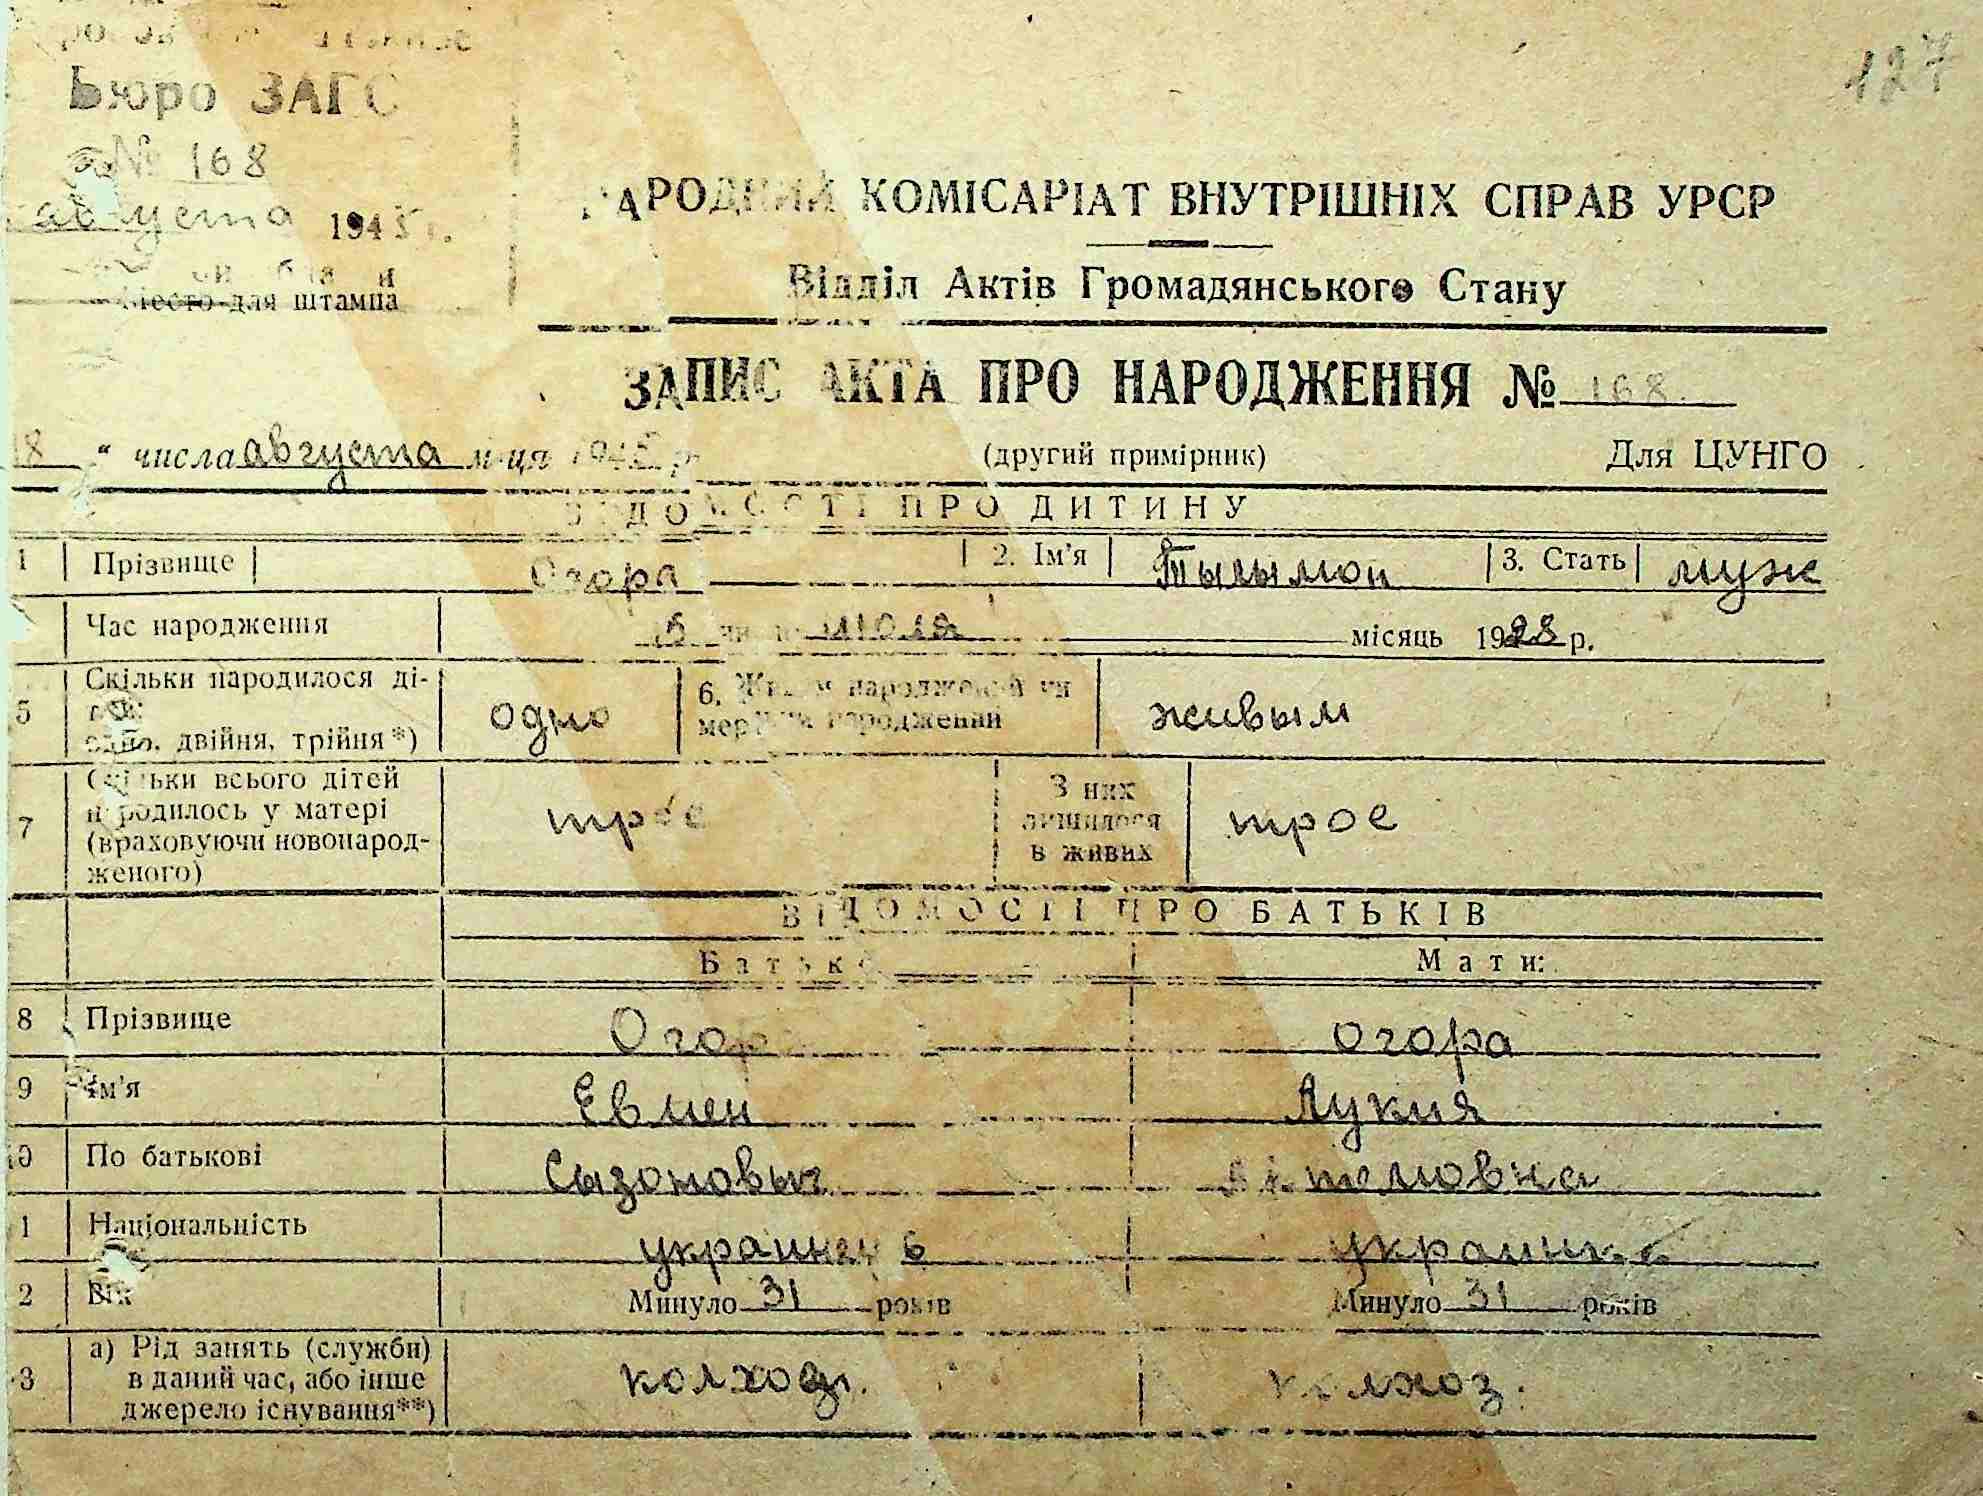 Бюро ЗАГС
№ 168
августа 1945 г.
Место для штампа
127
НАРОДНИЙ КОМІСАРІАТ ВНУТРІШНІХ СПРАВ УРСР
Відділ Актів Громадянського Стану
ЗАПИС АКТА ПРО НАРОДЖЕННЯ № 168
18 " числа августа м-ця 1945 р. (другий примірник) Для ЦУНГО
ВІДОМОСТІ ПРО ДИТИНУ
1 Прізвище Огора 2. Ім'я Тылымон 3. Стать муж
Час народження июля місяць 1928 р.
5 Скільки народилося ді-
тей:
одно, двійня, трійня*) одно 6. Живим народжений чи
мертвим народжений живым
7 Скільки всього дітей
народилось у матері
(враховуючи новонарод-
женого) трое З них
лишилося
в живих трое
ВІДОМОСТІ ПРО БАТЬКІВ
Батько Мати:
8 Прізвище Огора Огора
9 Ім'я Евмен Лукия
10 По батькові Сызоновыч
1 Національність украинец украинка
2 Вік Минуло 31 років Минуло 31 років
3 а) Рід занять (служби)
в даний час, або інше
джерело існування**) колхоз. колхоз.